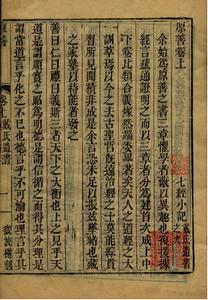 原善卷上
七經小記之九
戴氏遺書
余始為原善之書三章懼學者蔽以異趣也復援據
經言疏通證明之而以三章者分為建首次成上中
下卷比類合義燦然端委畢著矣天人之道經之大
訓萃焉以今之去古聖哲既遠治經之士莫能綜貫
習所見聞積非成是余言恐未足以振茲墜緒也藏
之家塾以待能者發之
善曰仁曰禮曰義斯三者天下之大衡也上之見乎天
道是謂順實之昭為明德是謂信循之而得其分理是
謂常道言乎化之不已也德言乎不可渝也理言乎其
原善 卷上 戴氏遺書 一 微波榭刻